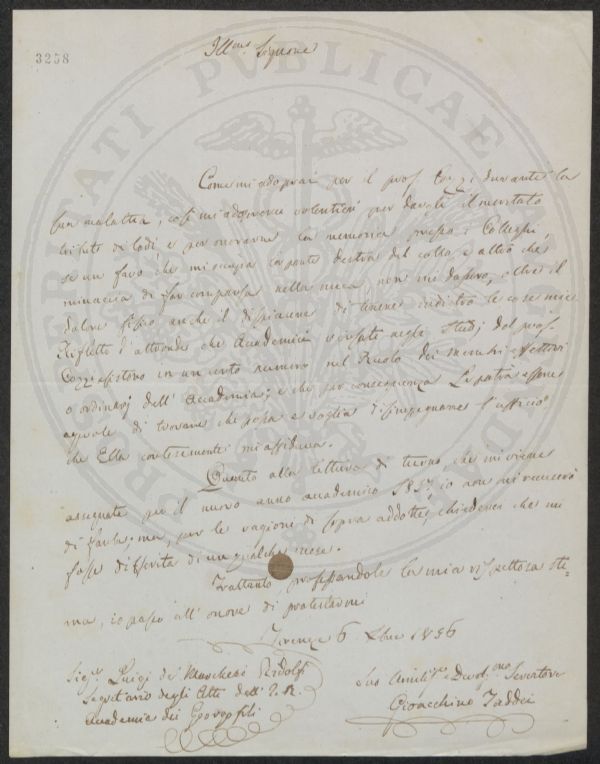 3258
Ill.mo Signore
Come mi adoprai per il prof. Cozzi durante la
sua malattia, così mi adoprerei volentieri per dargli il meritato
tributo di lodi, e per onorarne la memoria presso i Colleghi,
se un favo che mi occupa la parte destra del collo, e altro che
minaccia di far comparsa nella nuca, non mi dassero, oltre il
dolore fisico anche il dispiacere di tenere indietro le cose mie.
Rifletto d'altronde che Accademici versati negli Studj del prof.
Cozzi esistono in un certo numero nel Ruolo dei membri effettivi
o ordinarj dell' Accademia; e che per conseguenza Le potrà essere
agevole di trovare chi possa e voglia disimpegnare l'ufficio
che Ella cortesemente mi affidava.
Quanto alla lettura di turno, che mi viene
assegnata per il nuovo anno accademico 1857, io non mi ricuserò
di farla; ma, per le ragioni di sopra addotte, chiederei che mi
fosse differita di un qualche mese.
Frattanto professandole la mia rispettosa sti=
ma, io passo all' onore di protestarmi
Firenze 6 Xbre 1856
Sig.re Luigi de' Marchesi Ridolfi
Segretario degli Atti dell' I. R.
Accademia dei Georgofili
Suo Umiliss.mo e Devot.mo Servitore
Gioacchino Taddei
PROSPERITATI PUBLICAE